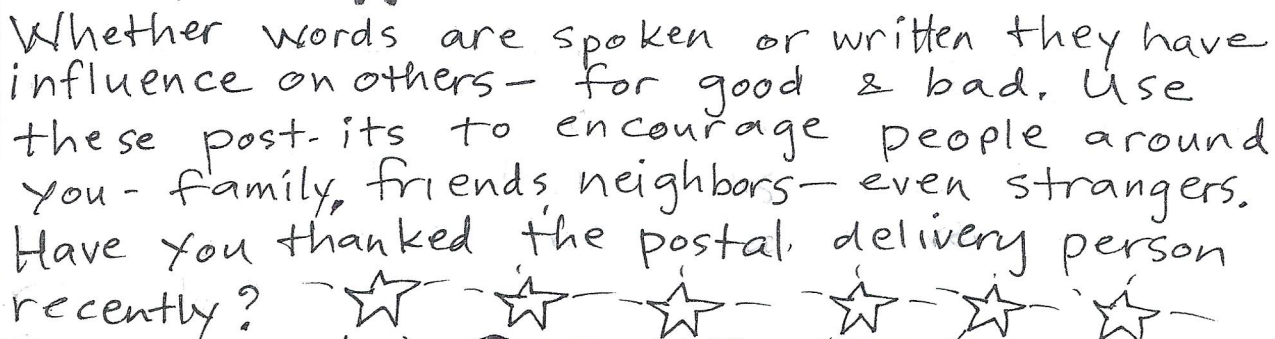 Whether words are spoken or written they have
influence on others— for good & bad. Use
these post-its to encourage people around
you - family, friends, neighbors— even strangers.
Have you thanked the postal delivery person
recently?